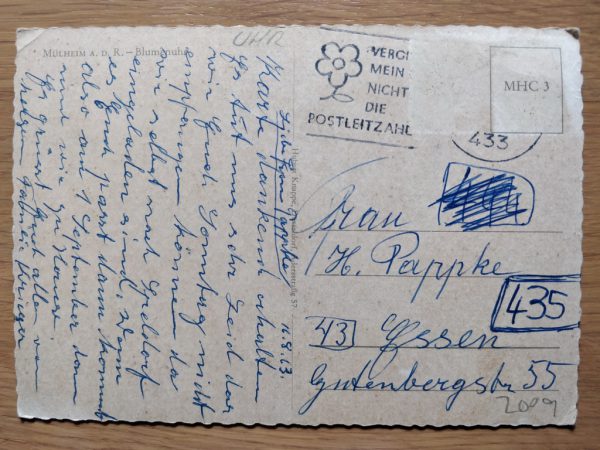 MÜLHEIM A. D. R. – Blumenuhr
UHR
11.8.63.
Liebe Frau Pappke
Karte dankend erhalten
Es tut uns sehr Leid das
wir Euch Sonntag nicht
empfangen können da
wir selbst nach Speldorf
eingeladen sind, wenn
es Euch passt dann kommt
also am 1 September dann
sind wir zu Hause.
Es grüsst Euch alle von
Familie Krieger
VERGI
MEIN
NICHT
DIE
POSTLEITZAHL
MHC 3
433
Frau
H. Pappke
435
43 Essen
Gutenbergstr 55
2009